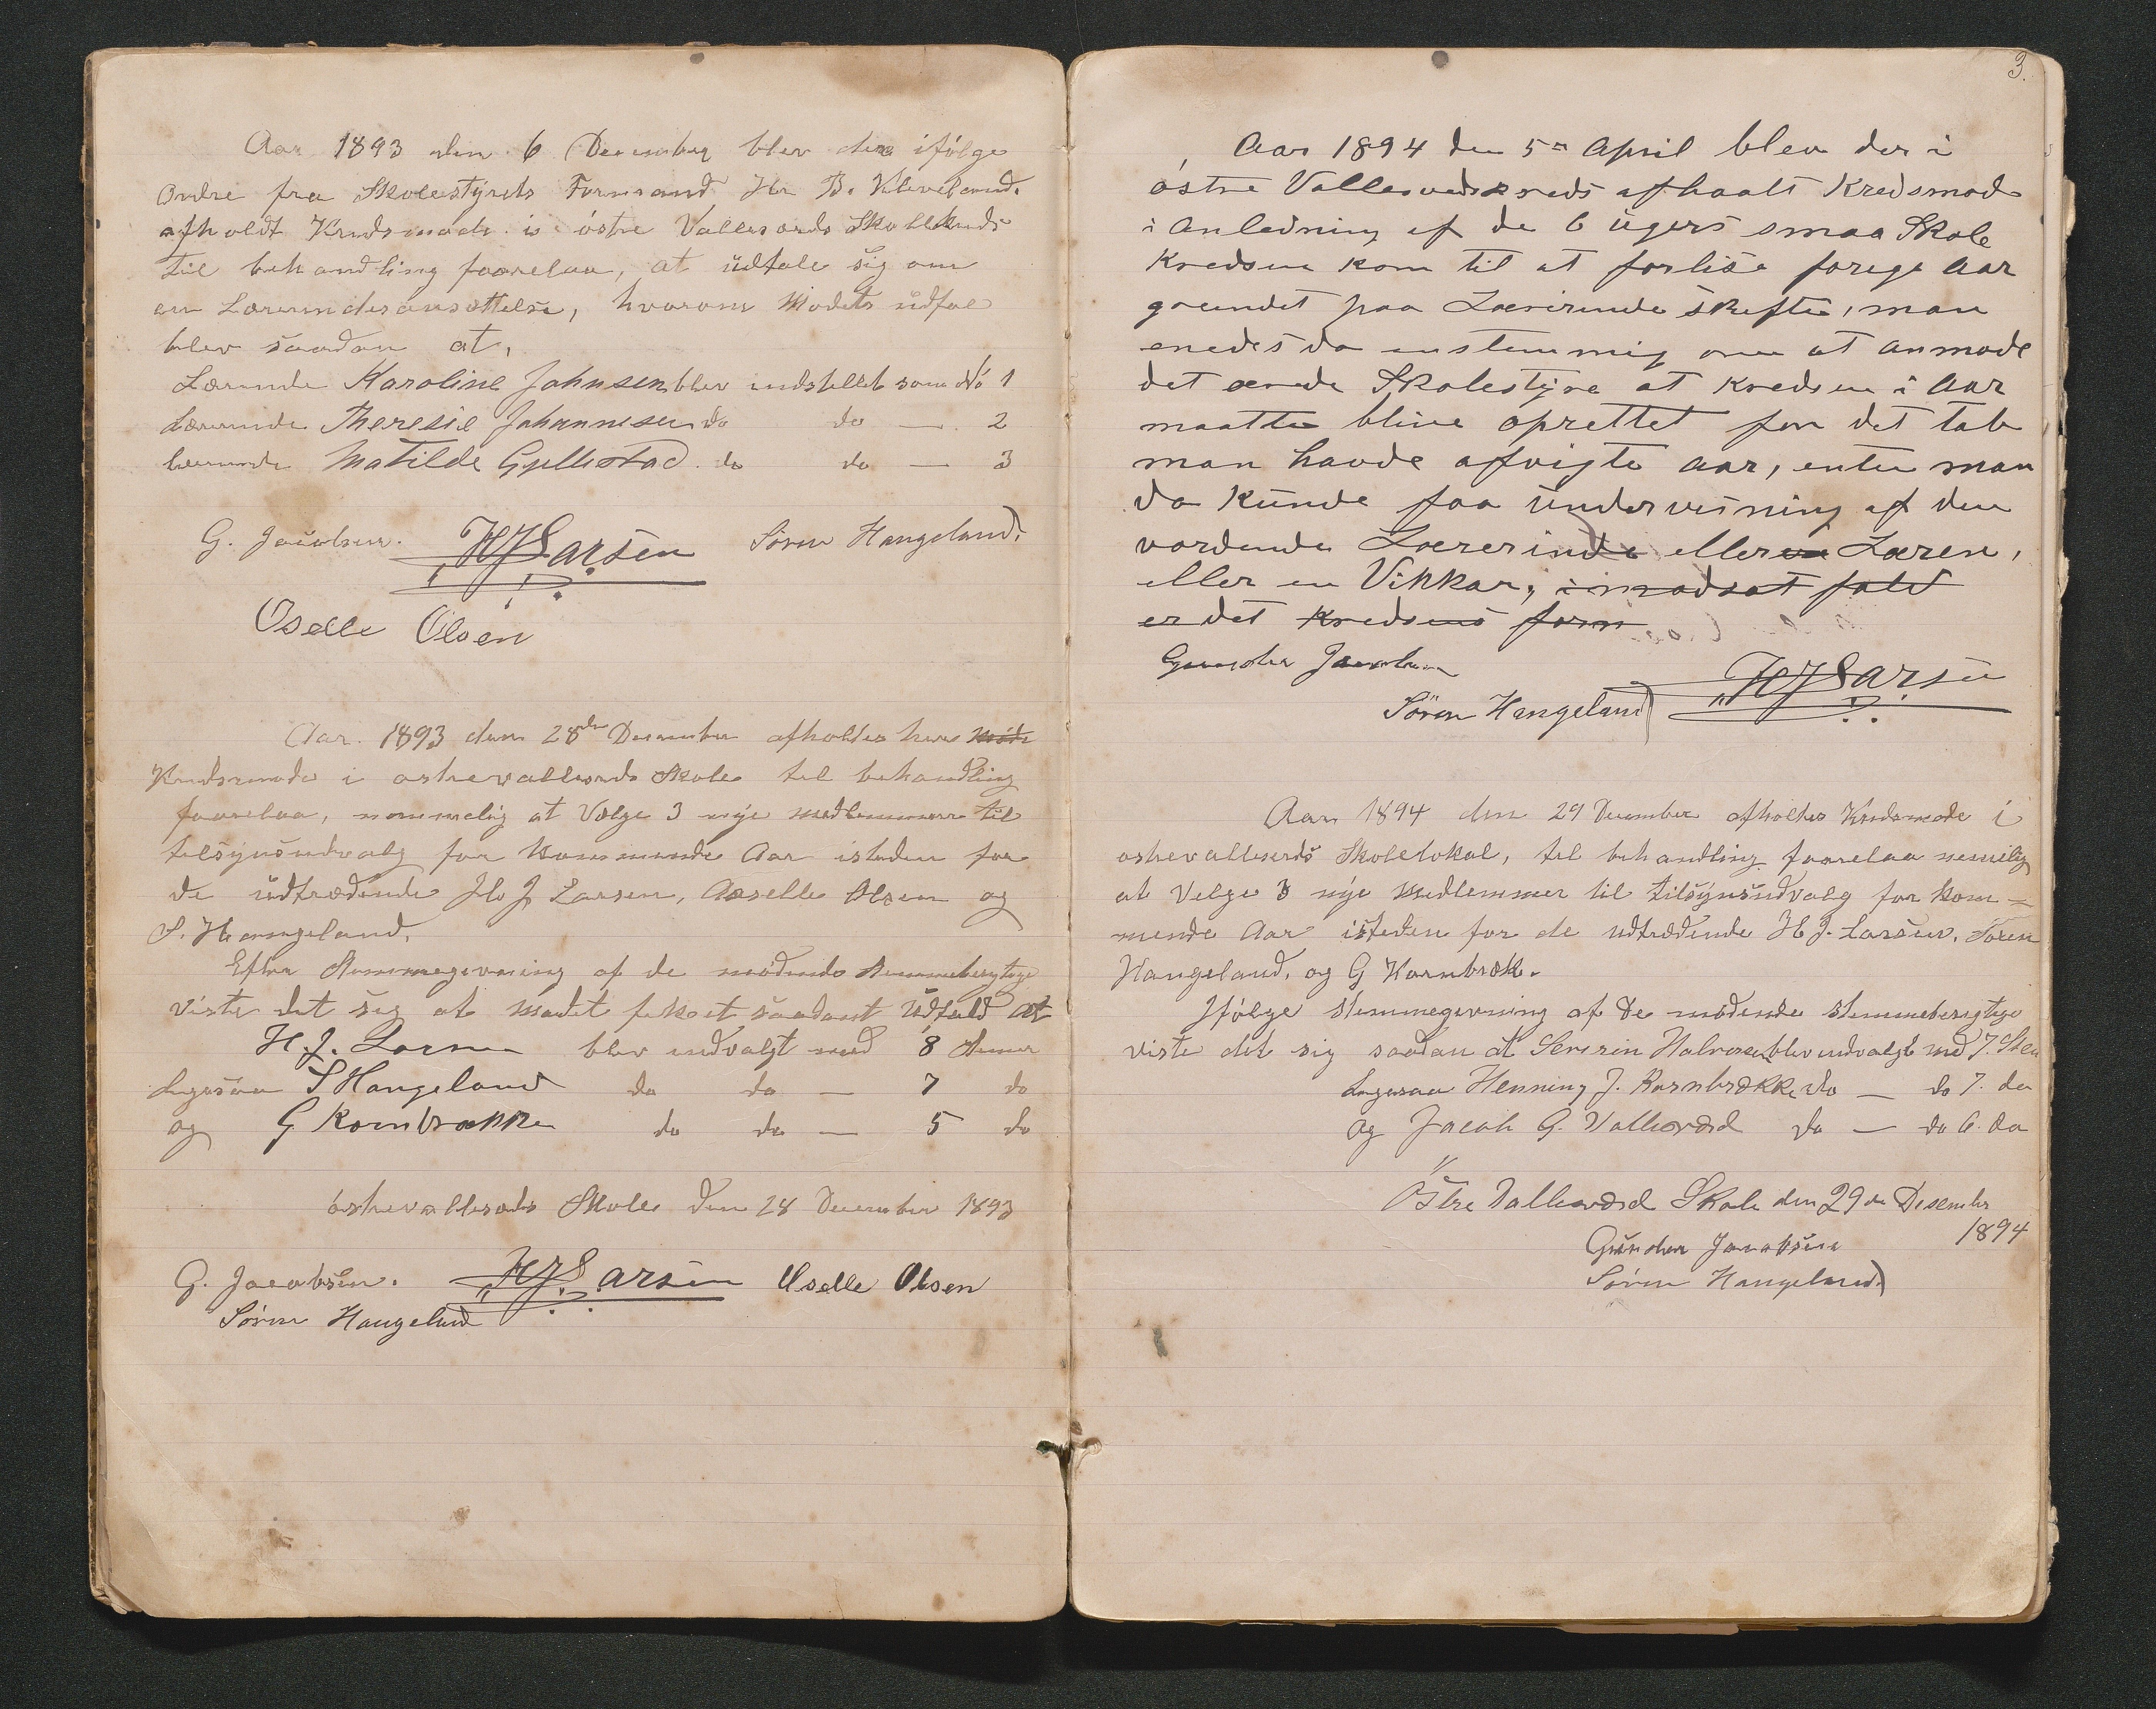 Aar 1893 den 6 December blev der ifølge
Ordre fra Skolestyrets Formand Hr B. Kleveland
afholdt Kredsmøde i østre Vallesverds Skolekreds
til behandling foorelaa, at üdtale sig om
en Lærerindesansættelse, hvorom Mødets üdfal
blev saadan at,
Lærerinde Karoline Johnsen blev indstillet som No 1
Lærerinde Theresie Johannesen do do — 2
Lærerinde Matilde Gjellestad do do — 3
G. Jacobsen. HJLarsen Søren Hangeland
Oselle Olsen
Aar 1893 den 28de December afholdes her Møde
Kredsmøde i østrevallesverds Skole til behandling
foorelaa, nemmelig at Vælge 3 nye medlemmer til
tilsynsudvalg for Kommende Aar isteden for
de üdtrædende H. J. Larsen, Aaselle Olsen og
S. Hangeland.
Efter Stemmegivning af de mødende stemmeberigtige
viste det sig at mødet fik et saadant Üdfald at
H. J. Larsen blev indvalgt med 8 stemer
Ligesaa S Hangeland do do — 7 do
og G Kornbrække do do — 5 do
østrevallesverds Skole den 28 December 1893
G. Jacobsen. HJLarsen Oselle Olsen
Søren Hangeland
3.
Aar 1894 den 5te April blev der i
østre Vallesverdskreds afhaalt Kredsmøde
i Anledning af de 6 ügers smaa Skole
Kredsen kom til at forlise forige Aar
grundet paa Lærerinde skifte, man
enedes da enstemmig om at anmode
det ærede Skolestyre at Kredsen i Aar
maatte blive oprettet for det tab
man havde afvigte aar, enten man
da Künde faa ündervisning af den
vordende Lærerinde eller en Læren,
eller en Vikkar, i modsat fald
er det Kredsens form
Gunder Jacobsen
Søren Hangeland HJLarsen
Aar 1894 den 29 December afholtes Kredsmøde i
østrevalleserds Skolelokal, til behandling foorelaa nemelig
at Velge 3 nye Medlemmer til tilsynsüdvalg for kom=
mende Aar isteden for de udtrædende H. J. Larsen, Søren
Hangeland, og G Kornbræk.
Ifølge stemmegivning af De mødende stemmeberigtige
viste det sig saadan at Severin Halvorsen blev indvalgt med 7. Stem
Ligesaa Henning J. Kornbrække do — do 7. do
og Jacob G. Valleværd do — do 6. do
Østre Valleværd Skole den 29de Desember
1894
Günder Jacobsen
Søren Hangeland